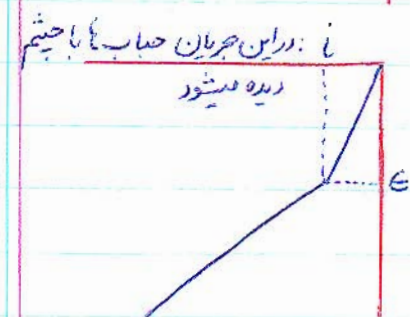 i : در این جریان حباب ها با چشم
دیده میشود
ϵ